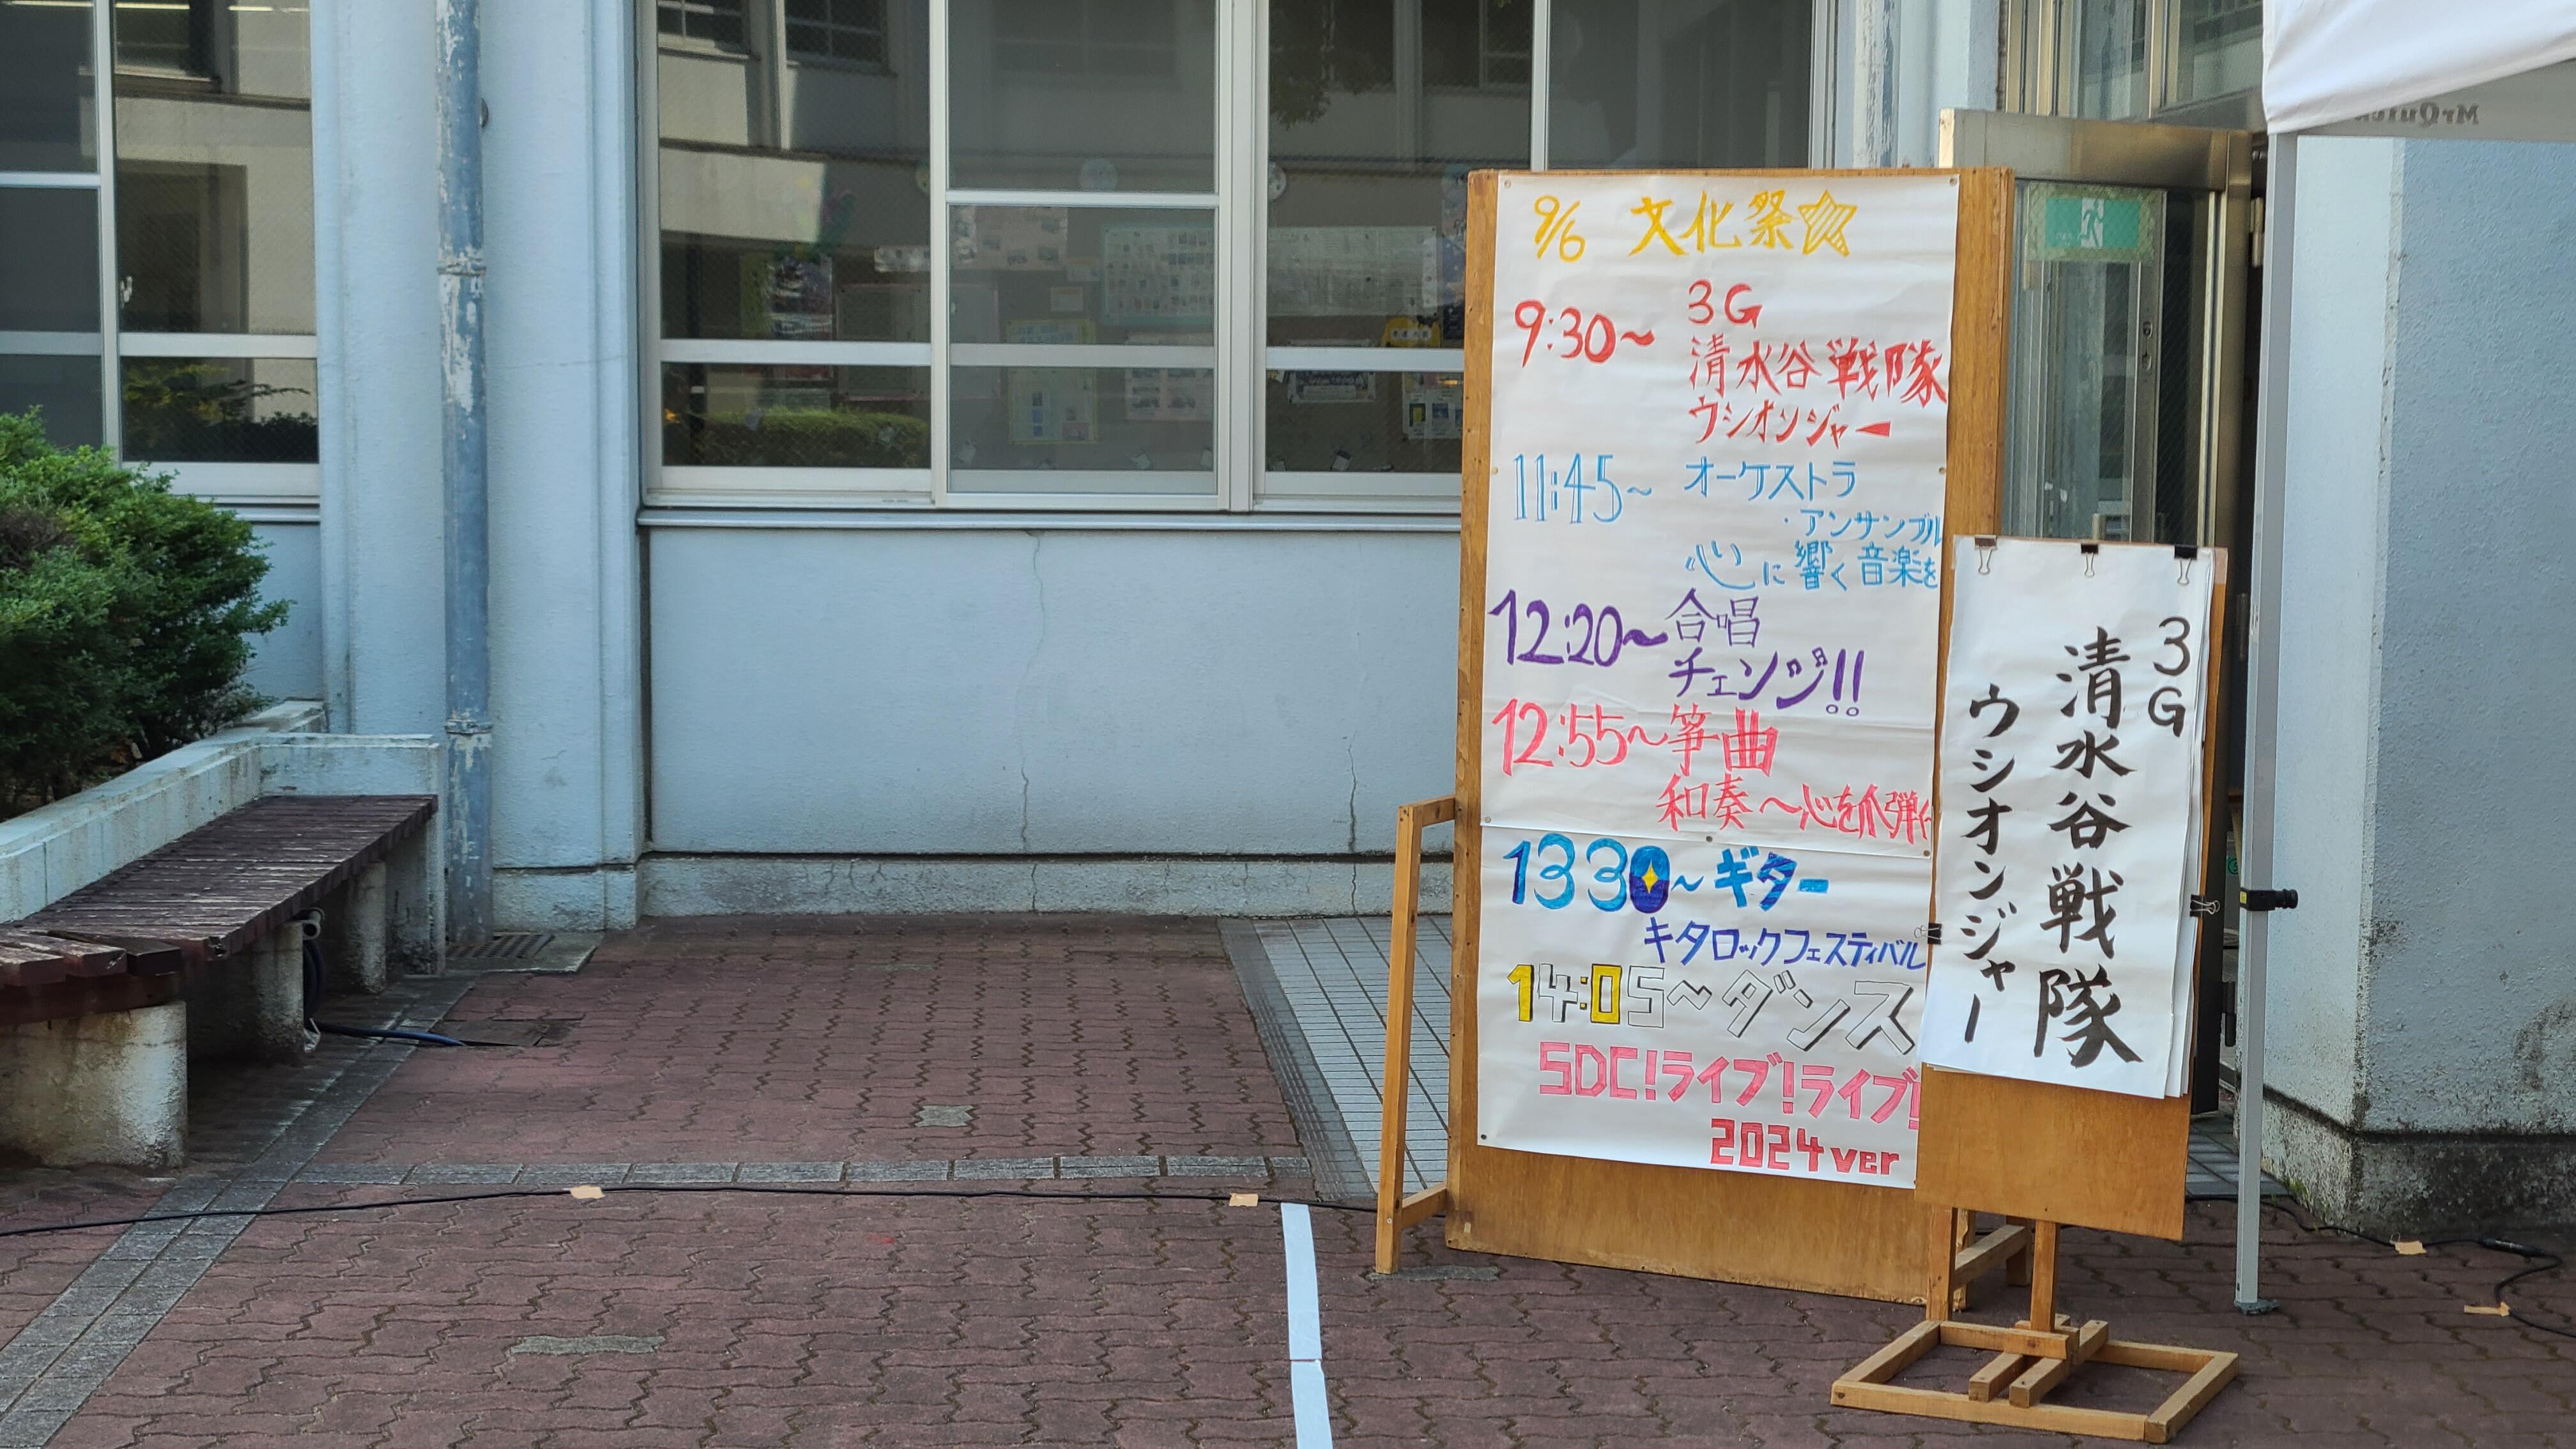 9/6 文化祭☆
9:30～ 3G
清水谷戦隊
ウシオンジャー
11:45～ オーケストラ
・アンサンブル
心に響く音楽を
12:20～ 合唱
チェンジ!!
12:55～ 箏曲
和奏～心を爪弾く
13:30～ ギター
キタロックフェスティバル
14:05～ダンス
SDC!ライブ!ライブ!
2024 ver
3G
清水谷戦隊
ウシオンジャー